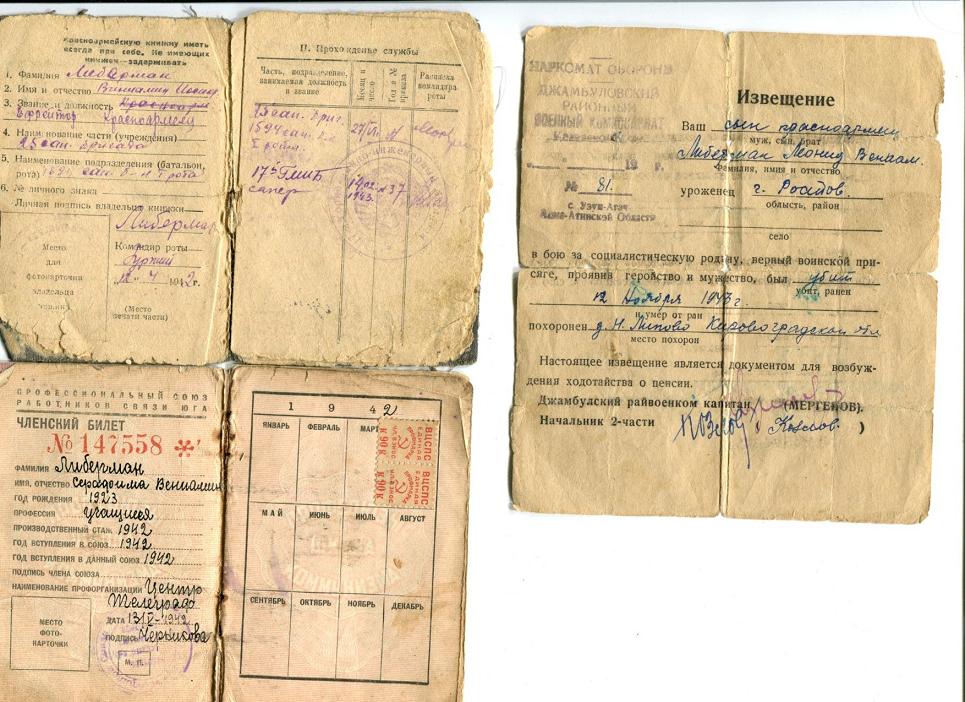 Красноармейскую книжку иметь
всегда при себе. Не имеющих
книжек — задерживать
1. Фамилия Либерман
2. Имя и отчество Вениамин
3. Звание и должность Красноарм
Ефрейтор Красноармеец
4. Наименование части (учреждения)
25 сап. бригада
5. Наименование подразделения (батальон,
рота) 1594 сап. б-н 1 рота
6. № личного знака
Личная подпись владельца книжки
Либерман
Место
для
фотокарточки
владельца
книжки
Командир роты
1942 г.
(Место
печати части)
II. Прохождение службы
Часть, подразделение,
занимаемая должность
и звание
Месяц и
число
Год и №
приказа
Расписка
командира
роты
25 сап. бриг.
1594 сап.
1 рота
сапер
1943
ПРОФЕССИОНАЛЬНЫЙ СОЮЗ
РАБОТНИКОВ СВЯЗИ ЮГА
ЧЛЕНСКИЙ БИЛЕТ
№ 147558
ФАМИЛИЯ Либерман
ИМЯ, ОТЧЕСТВО Серафима Вениамин
ГОД РОЖДЕНИЯ 1923
ПРОФЕССИЯ учащиеся
ПРОИЗВОДСТВЕННЫЙ СТАЖ 1942
ГОД ВСТУПЛЕНИЯ В СОЮЗ 1942
ГОД ВСТУПЛЕНИЯ В ДАННЫЙ СОЮЗ 1942
ПОДПИСЬ ЧЛЕНА СОЮЗА
НАИМЕНОВАНИЕ ПРОФОРГАНИЗАЦИИ Центр
Телеграф
ДАТА 1942
ПОДПИСЬ Черникова
МЕСТО
ФОТО-
КАРТОЧКИ
М. П.
1942
ЯНВАРЬ ФЕВРАЛЬ МАРТ
ВЦСПС
ЕДИНАЯ
ВЦСПС
ЕДИНАЯ
МАЙ ИЮНЬ ИЮЛЬ АВГУСТ
СЕНТЯБРЬ ОКТЯБРЬ НОЯБРЬ ДЕКАБРЬ
НАРКОМАТ ОБОРОНЫ
ДЖАМБУЛОВСКИЙ
РАЙОННЫЙ
ВОЕННЫЙ КОМИССАРИАТ
19 г.
№ 81.
с. Узун-Агач
Алма-Атинской Области
Извещение
Ваш сын красноармеец
муж, сын, брат
Либерман Леонид Вениам.
Фамилия, имя и отчество
уроженец г. Ростов.
область, район
село
в бою за социалистическую родину, верный воинской при-
сяге, проявив геройство и мужество, был убит
убит, ранен
12 Ноября 1943 г.
и умер от ран
похоронен д. Н. Липово Кировоградской обл
место похорон
Настоящее извещение является документом для возбуж-
дения ходотайства о пенсии.
Джамбулский райвоенком капитан (МЕРГЕНОВ).
Начальник 2-части Козлов )